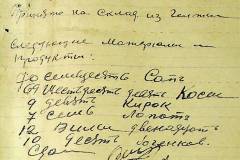 Принято на склад из Галожи
следующие материалы и
продукты:
70 семьдесят Сапъ
69 Шестдесят девять Косы
9 девять Кирок
7 семь Лопатъ
12 Вилы двенадцать
10 десять
Сдал